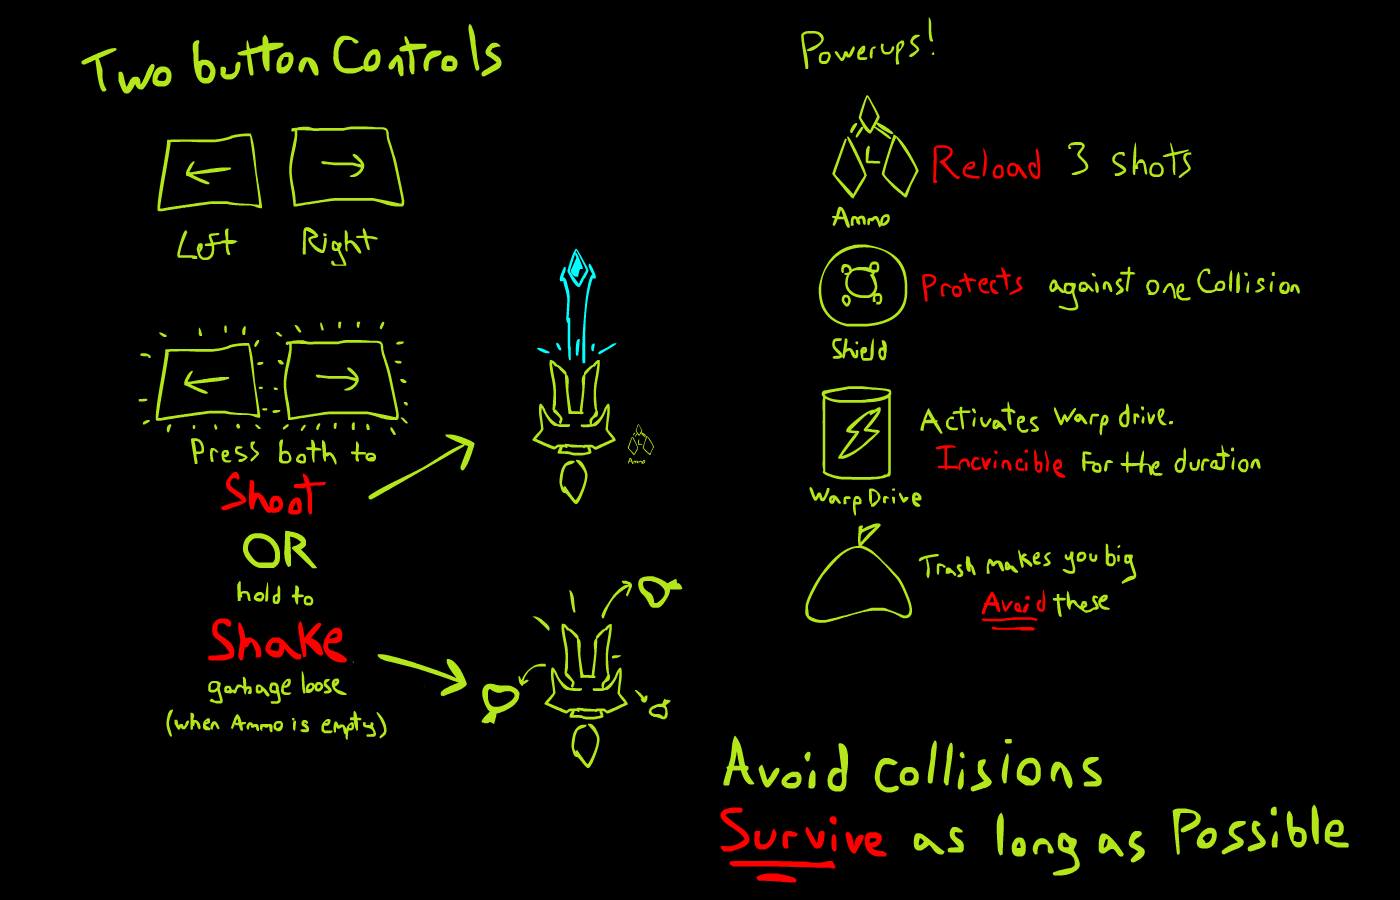 Two button Controls
Left
Right
Press both to
Shoot
OR
hold to
Shake
garbage loose
(when Ammo is empty)
L
Ammo
Powerups!
L
Reload 3 shots
Ammo
Protects against one Collision
Shield
Activates Warp drive.
Incvincible For the duration
Warp Drive
Trash makes you big
Avoid these
Avoid collisions
Survive as long as Possible